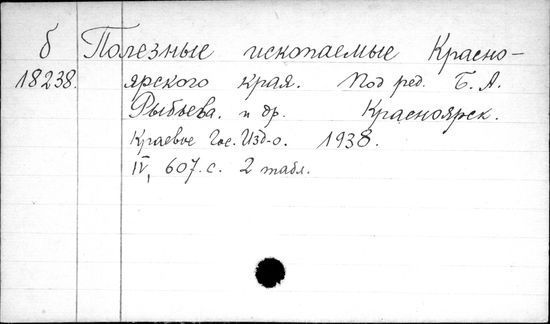 б Полезные ископаемые Красно-
18238. ярского края. Под ред. Б. А.
Рыбьева. и др. Красноярск.
Краевое Гос. Изд-о. 1938.
IV, 607. с. 2 табл.